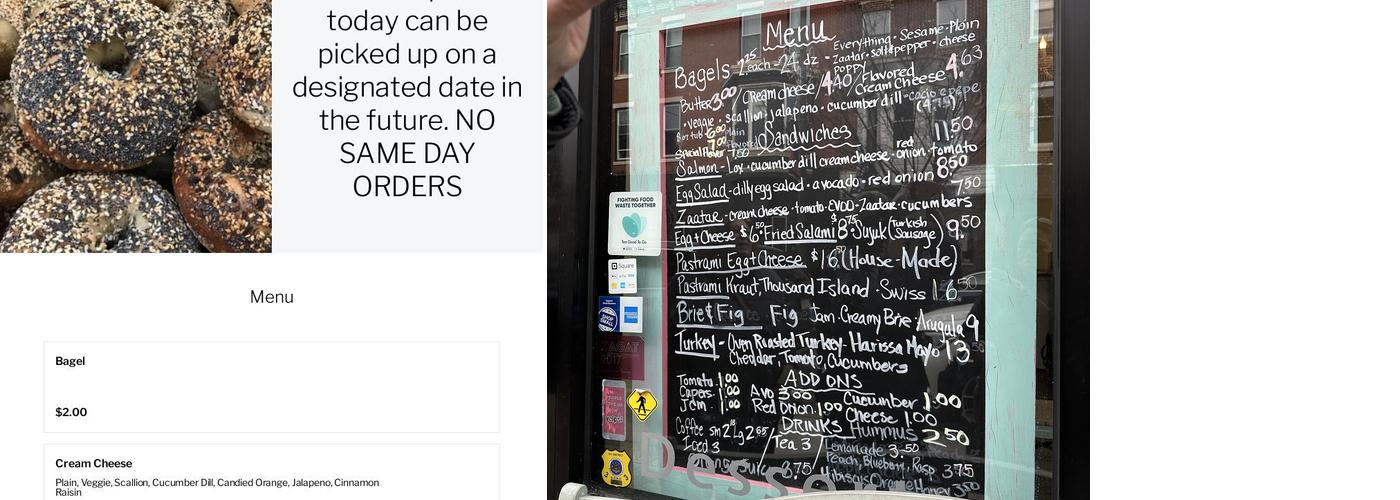 today can be
picked up on a
designated date in
the future. NO
SAME DAY
ORDERS
Menu
Bagel
$2.00
Cream Cheese
Plain, Veggie, Scallion, Cucumber Dill, Candied Orange, Jalapeno, Cinnamon
Raisin
Menu
Bagels 2.25 each - 24 dz - Everything · Sesame · Plain
Zaatar · salt & pepper · cheese
poppy
Butter 3.00 Cream cheese / 4.40 / Flavored Cream Cheese 4.63
· veggie · scallion · jalapeno · cucumber dill · cacio e pepe
(4.75)
Plain
Flavored
Special Flavor 7.50
Sandwiches
11.50
Salmon - Lox · cucumber dill cream cheese · red onion · tomato
Egg Salad - dilly egg salad · avocado · red onion 8.50
7.50
Zaatar - cream cheese · tomato · EVOO · Zaatar · cucumbers
Egg + Cheese $6.50 Fried Salami $8.75 Sujuk (Turkish Sausage) 9.50
Pastrami Egg + Cheese $16.50 (House-Made)
Pastrami Kraut, Thousand Island · Swiss 16.50
Brie & Fig Fig Jam · Creamy Brie · Arugula 9
Turkey - Oven Roasted Turkey - Harissa Mayo 13
Cheddar Tomato, Cucumbers
ADD ONS
Tomato 1.00
Capers 1.00 Avo 3.00 Cucumber 1.00
Jam 1.00 Red Onion 1.00 Cheese 1.00
DRINKS Hummus 2.50
Coffee sm 2 Lg 2.65
Iced 3 / Tea 3 / Lemonade 3.50
Peach, Blueberry, Rasp 3.75
3.75 Hibiscus Orange Honey 3.50
FIGHTING FOOD
WASTE TOGETHER
Too Good To Go
Square
SHOP
SMALL
AMERICAN
EXPRESS
ZAGAT
2017